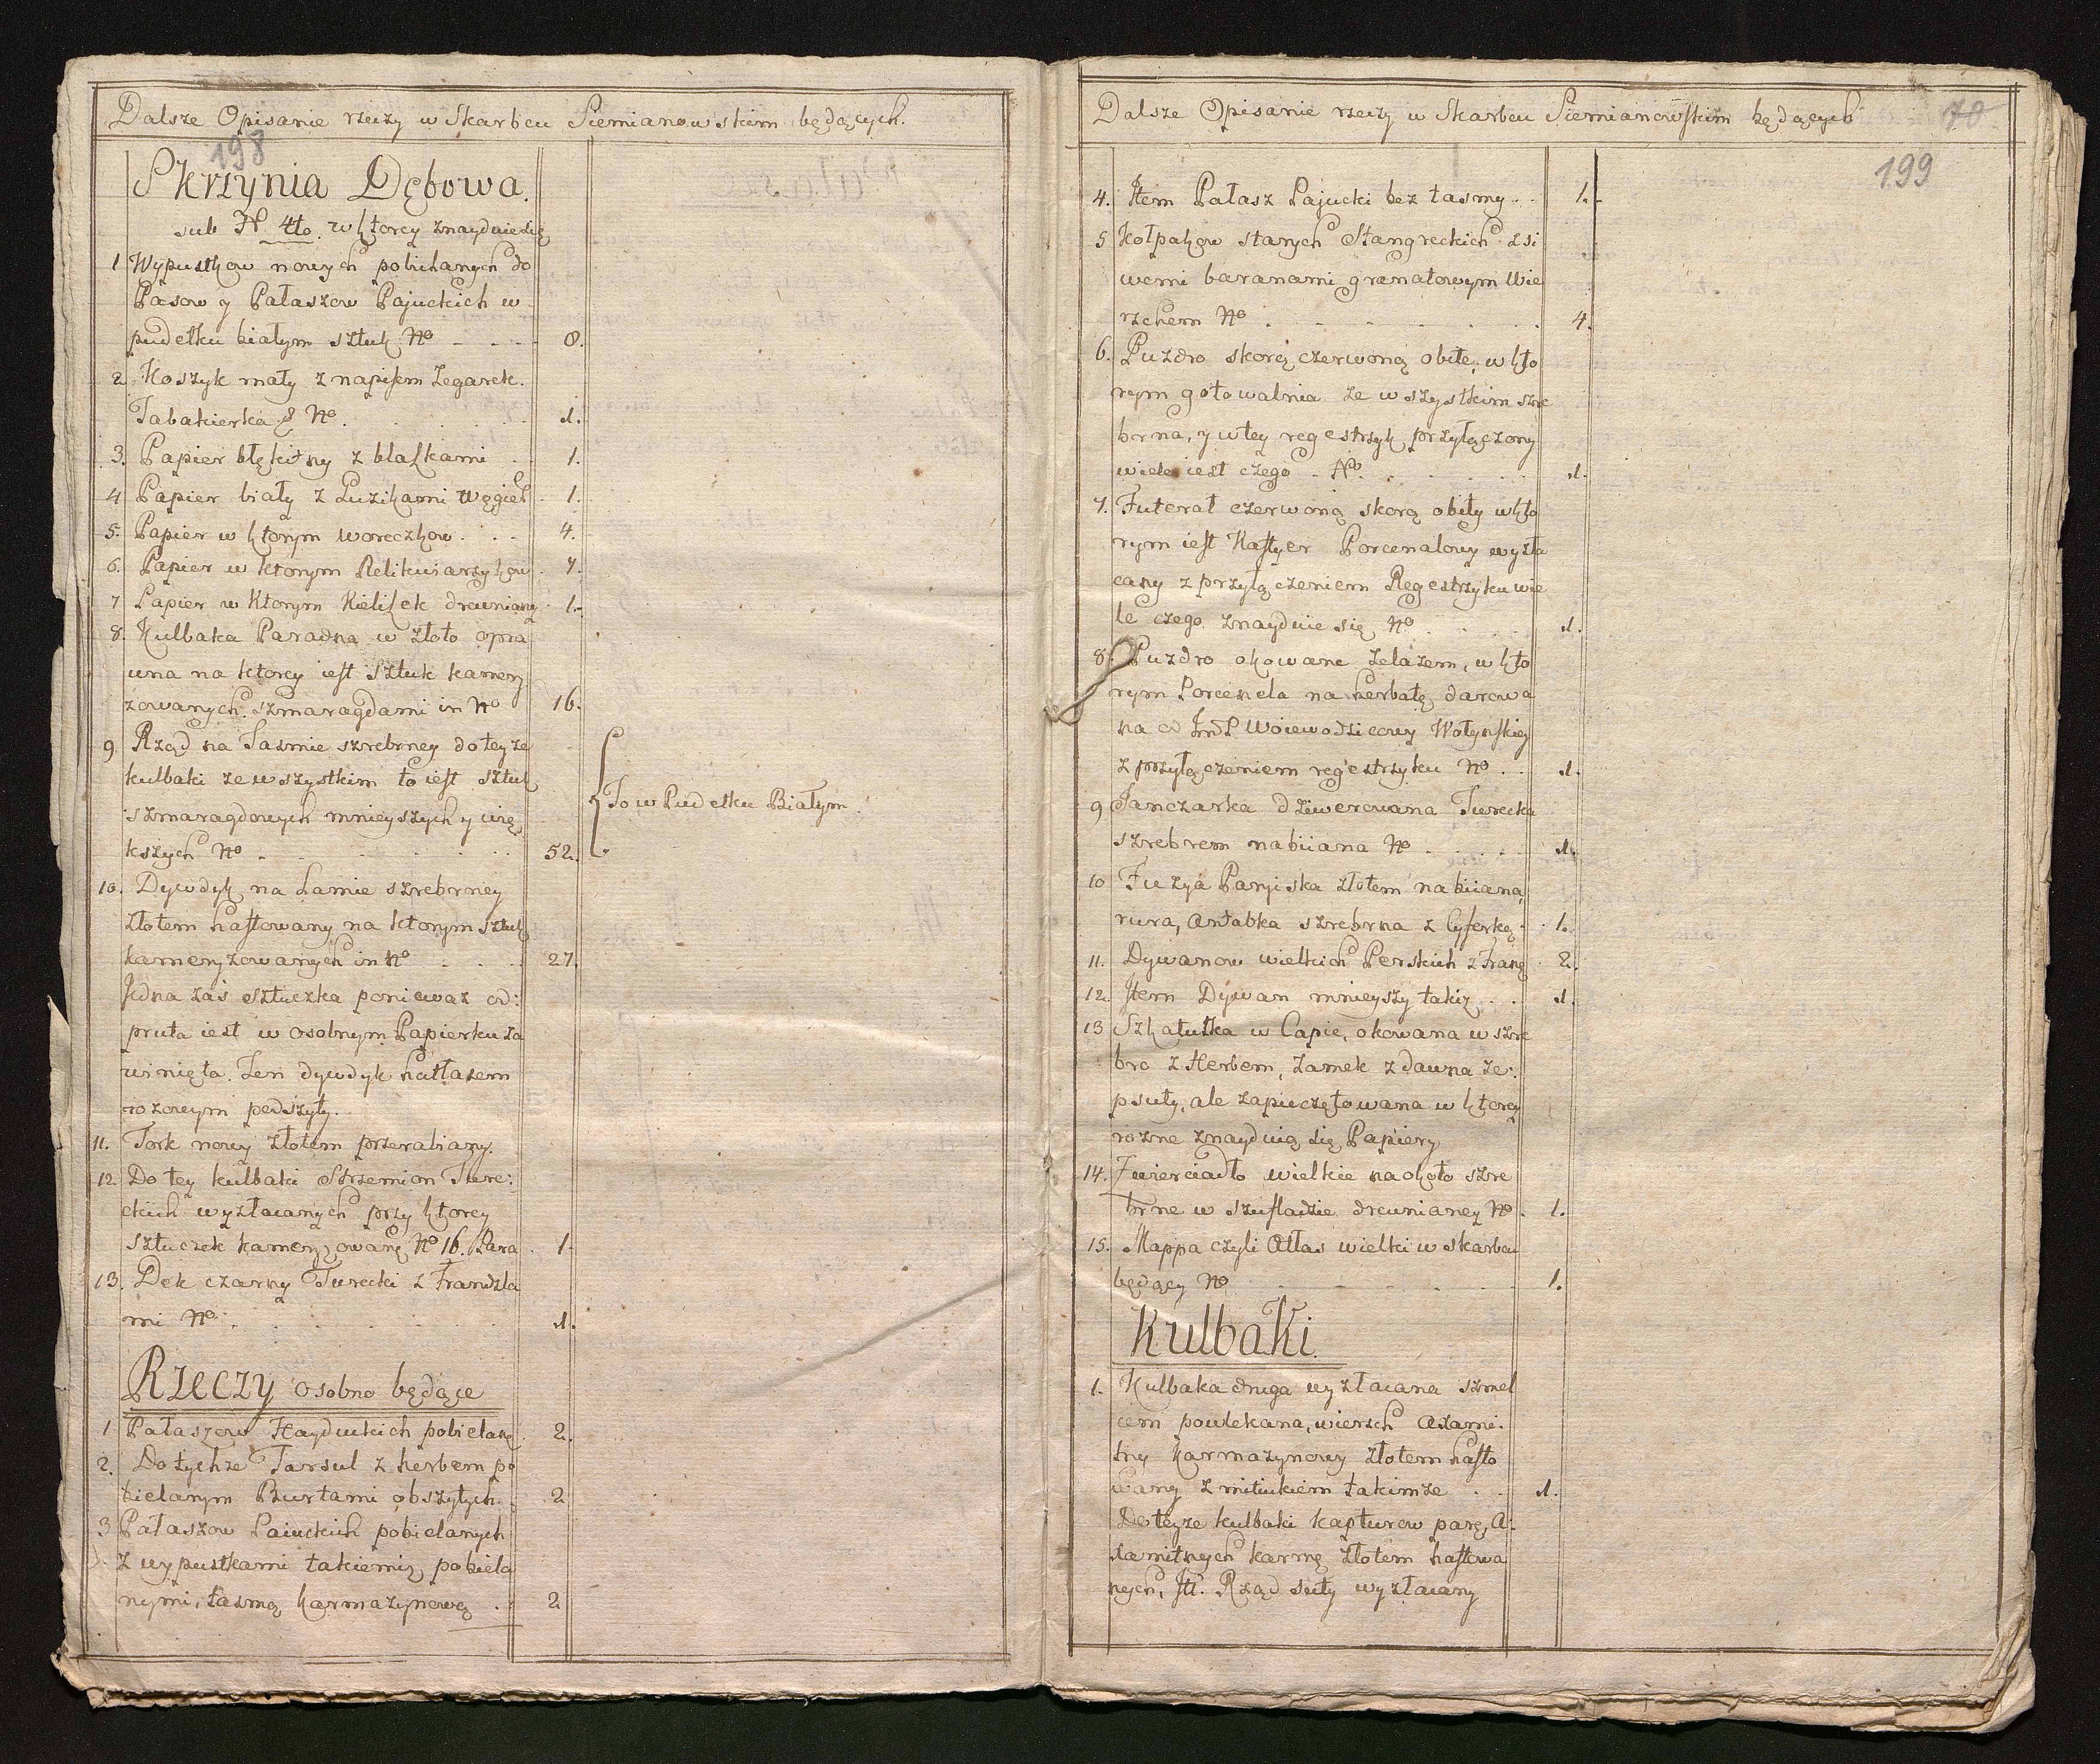 Dalsze Opisanie rzeczy w Skarbcu Siemianowskim będących.
198
Skrzynia Dębowa.
sub N. 4to. w ktorey znayduie się
1 Wypustkow nowych pobielanych do
Pasow y Pałaszow Pajuckich w
pudełku białym sztuk No - - - 8.
2. Koszyk mały z napisem Zegarek.
Tabakierka & No. . . . . 1.
3. Papier błękitny z blaszkami . . 1.
4 Papier biały z Guzikami Węgiel . 1.
5. Papier w ktorym woreczkow . . - 4.
6. Papier w ktorym Relikwiarzykow . 7.
7 Papier w Ktorym Kieliszek drewniany . 1.-
8. Kulbaka Paradna w złoto opra
wna na ktorey iest Sztuk kamery
zowanych szmaragdami in No 16.
9. Rząd na Tasmie szrebrney do teyże
kulbaki ze wszystkim to iest sztuk
szmaragdowych mnieyszych y wię
kszych No . . . . . . 52.
To w Pudełku Białym
10. Dywdyk na Lamie szrebrney
złotem hastowany na ktorym sztuk
kameryzowanych in No . . . . 27.
Jedna zaś sztuczka poniewaz od:
pruta iest w osobnym Papierku za
winięta. Ten dywdyk hatłasem
rozowym podszyty.
11. Tork nowy złotem przerabiany.
12. Do tey kulbaki Strzemion Ture:
ckich wyzłacanych przy ktorey
sztuczek kameryzowanę No 16. Para . 1.
13. Dek czarny Turecki z Frandzla
mi No . . . . . . . 1.
Rzeczy osobno będące
1 Pałaszow Hayduckich pobielanę . 2.
2. Do tychze Tarsul z herbem po
bielanym Burtami obszytych. . 2
3 Pałaszow Paiuckich pobielanych
z wypustkami takiemiz pobiela
nymi, tasmą karmazynową . . 2
Dalsze Opisanie rzeczy w Skarbcu Siemianowskim będących
70
199
4. Item Pałasz Pajucki bez tasmy . . 1.-
5 Kołpakow starych Stangreckich z si
wemi baranami granatowym Wie
rzchem No . . . . . . 4.
6. Puzdro skorą czerwoną obite, w kto
rym gotowalnia ze wszystkim szre
brna, y w tey regestrzyk przyłączony
wiele iest czego - No. . . . . 1.
7. Futerał czerwoną skorą obity w kto
rym iest Kastyer Porcenalowy wyzła
cany z przyłączeniem Regestrzyku wie
le czego znayduie się No . . . 1.
8. Puzdro okowane zelazem, w kto
rym Porcenela na herbatę darowa
na od Jmć P Woiewodzicowy Wołynskiey
z przyłączeniem regestrzyku No . . 1.
9 Janczarka dziwerowana Turecka
szrebrem nabiiana No . . . . . 1.
10 Fuzya Paryiska złotem nabiiana,
rura, Antabka szrebrna z Cyferką . 1.
11. Dywanow wielkich Perskich z Franę . 2.
12. Item Dywan mnieyszy takiz . . 1.
13 Szkatułka w Capie, okowana w szre
bro z Herbem, Zamek z dawna Ze:
psuty, ale zapieczętowana w ktorey
rozne znayduią się Papiery
14. Zwierciadło wielkie naokoło szre
brne w szufladzie drewnianey No . 1.
15. Mappa czyli Atlas wielki w skarbcu
będący No . . . . . . 1.
Kulbaki
1. Kulbaka druga wyzłacana szmel
cem powlekana, wierzch axami:
tny karmazynowy złotem hafto
wany z mitukiem takimze . . 1.
Do teyze kulbaki kapturow parę, A:
xamitnych karmę złotem haftowa
nych, It. Rząd suty wyzłacany